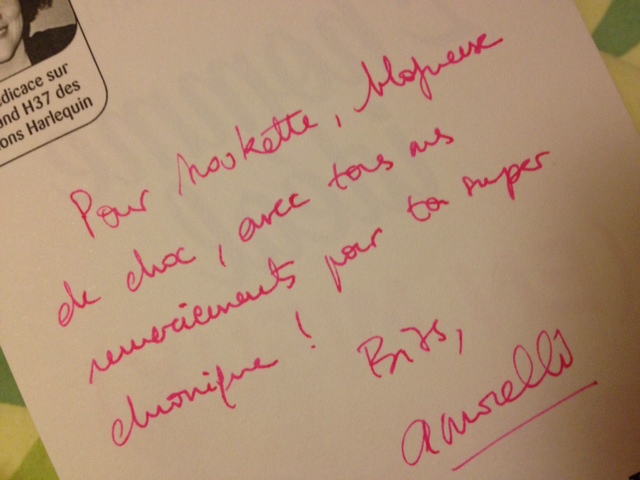 dicace sur
and H37 des
ons Harlequin
Pour Noukette, blogueuse
de choc, avec tous mes
remerciements pour ta super
chronique !
Bises,
amorelli